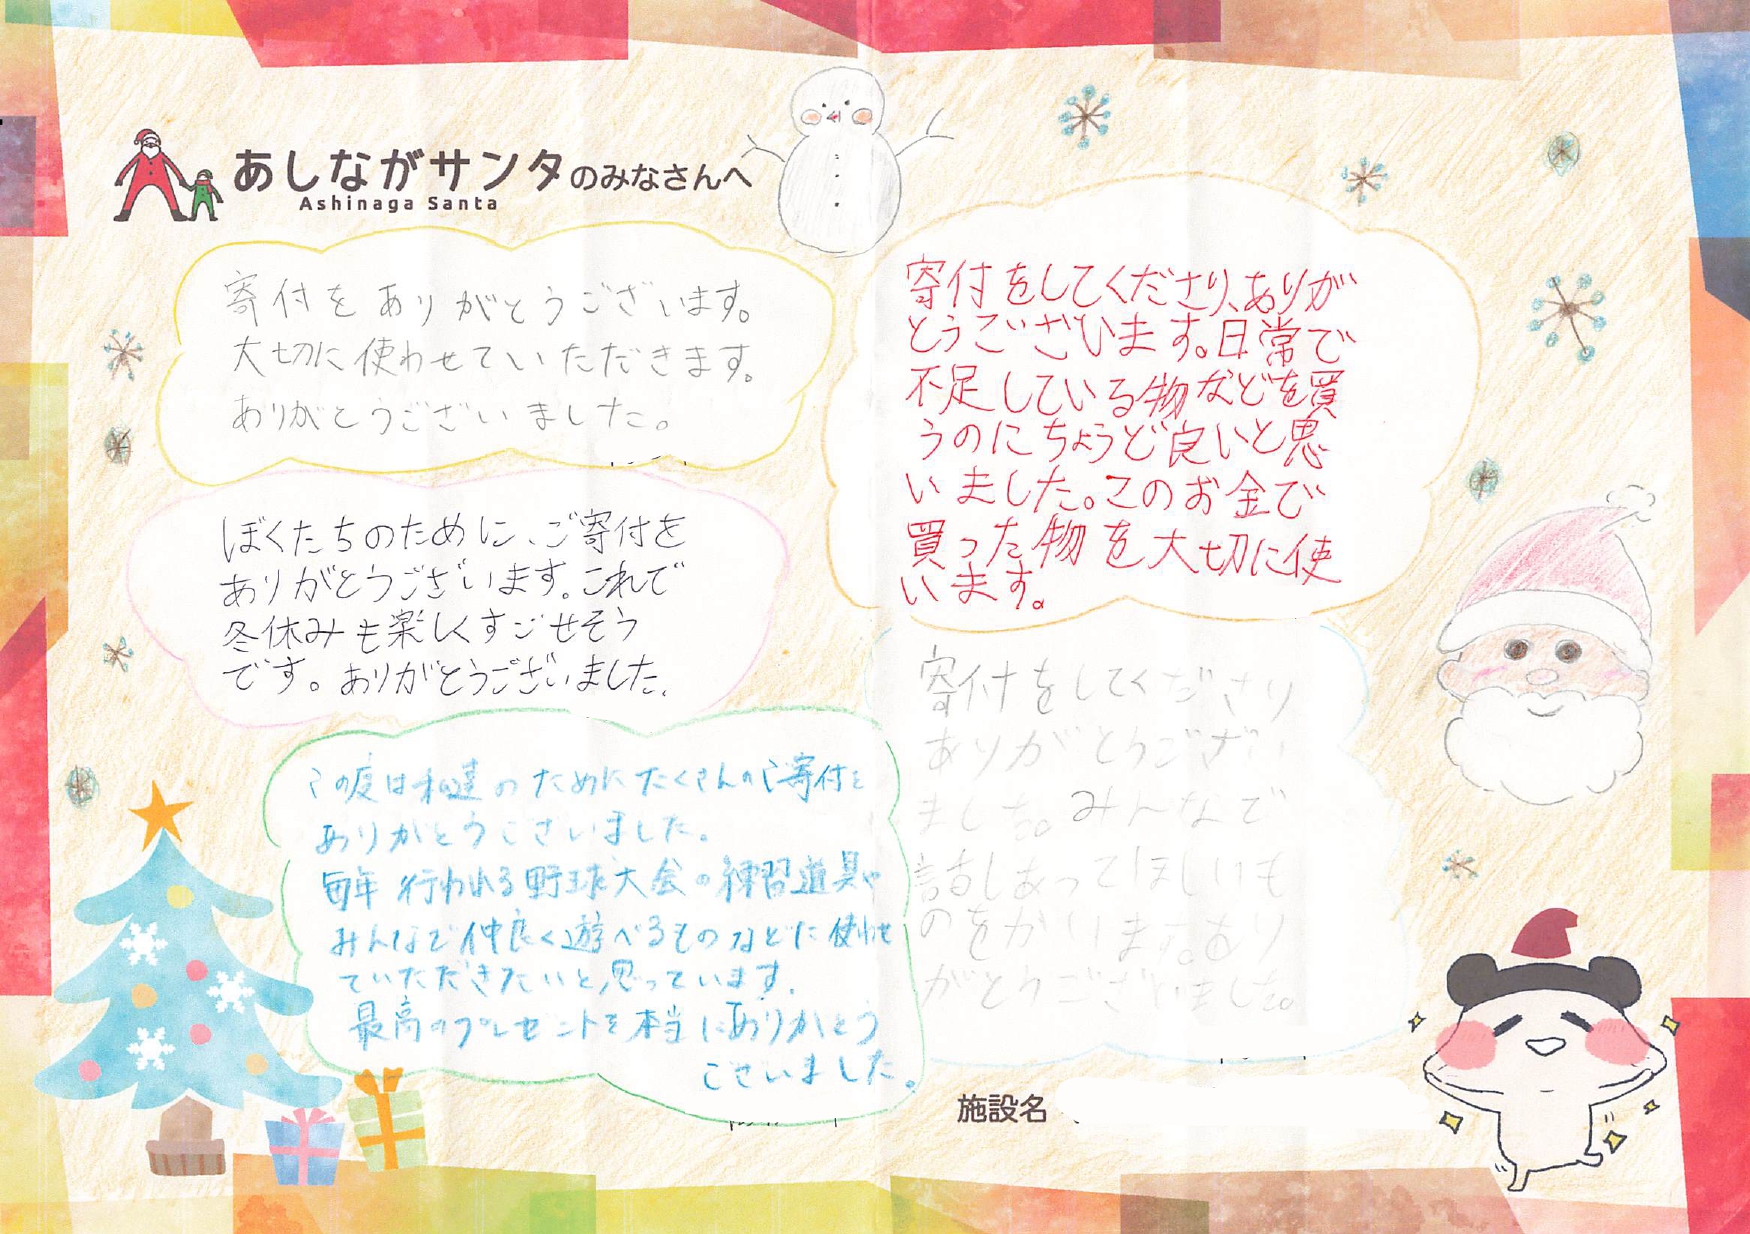 あしながサンタのみなさんへ
Ashinaga Santa
寄付をありがとうございます。
大切に使わせていただきます。
ありがとうございました。
ぼくたちのために、ご寄付を
ありがとうございます。これで
冬休みも楽しくすごせそう
です。ありがとうございました。
この度は私達のためにたくさんのご寄付を
ありがとうございました。
毎年行われる野球大会の練習道具や
みんなで仲良く遊べるものなどに使わせ
ていただきたいと思っています。
最高のプレゼントを本当にありがとう
ございました。
寄付をしてくださり、ありが
とうございます。日常で
不足している物などを買
うのにちょうど良いと思
いました。このお金で
買った物を大切に使
います。
寄付をしてくださり
ありがとうござい
ました。みんなで
話しあってほしいも
のをかいます。あり
がとうございました。
施設名